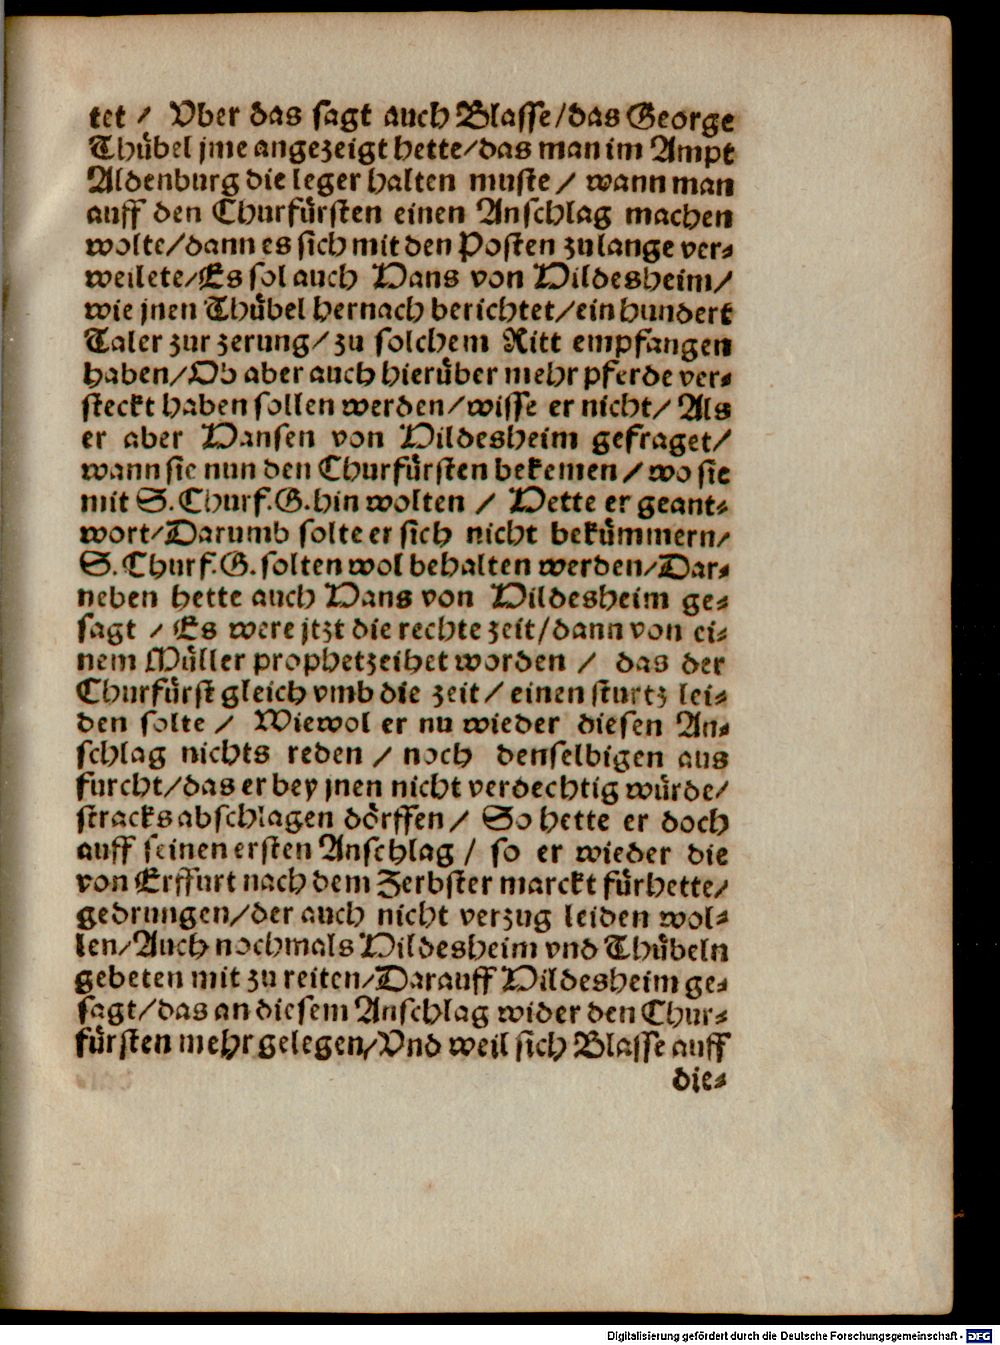 tet / Vber das sagt auch Blasse/das George
Thübel jme angezeigt hette/das man im Ampt
Aldenburg die leger halten muste/ wann man
auff den Churfürsten einen Anschlag machen
wolte/dann es sich mit den Posten zulange ver⸗
weilete/Es sol auch Hans von Hildesheim/
wie jnen Thübel hernach berichtet/ein hundert
Taler zur zerung/zu solchem Ritt empfangen
haben/Ob aber auch hierüber mehr pferde ver⸗
steckt haben sollen werden/wisse er nicht/ Als
er aber Hansen von Hildesheim gefraget/
wann sie nun den Churfürsten bekemen/wo sie
mit S.Churf.G.hin wolten / Hette er geant⸗
wort/Darumb solte er sich nicht bekümmern/
S.Churf.G.solten wol behalten werden/Dar⸗
neben hette auch Hans von Hildesheim ge⸗
sagt / Es were jtzt die rechte zeit/dann von ei⸗
nem Müller prophetzeihet worden / das der
Churfürst gleich vmb die zeit/einen sturtz lei⸗
den solte / Wiewol er nu wieder diesen An⸗
schlag nichts reden / noch denselbigen aus
furcht/das er bey jnen nicht verdechtig würde/
stracks abschlagen dörffen/ So hette er doch
auff seinen ersten Anschlag/ so er wieder die
von Erffurt nach dem Zerbster marckt fürhette/
gedrungen/der auch nicht verzug leiden wol⸗
len/Auch nochmals Hildesheim vnd Thübeln
gebeten mit zu reiten/Darauff Hildesheim ge⸗
sagt/das an diesem Anschlag wider den Chur⸗
fürsten mehr gelegen/Vnd weil sich Blasse auff
die⸗
Digitalisierung gefördert durch die Deutsche Forschungsgemeinschaft - DFG